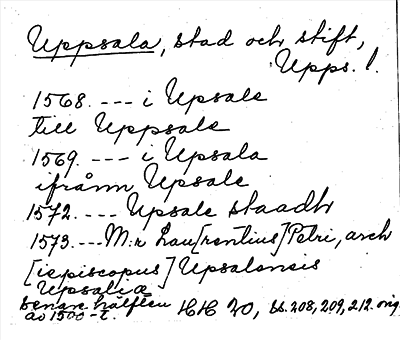 Uppsala, stad och stift,
Upps. l.
1568. --- i Upsale
till Uppsale
1569. --- i Upsala
ifrånn Upsale
1572. ---- Upsale staadh
1573. --- M:r Lau[rentius] Petri, arch
[iepiscopus] Upsalensis
Upsaliæ
senare hälften
av 1500-t. HH 20, ss. 208, 209, 212. orig.